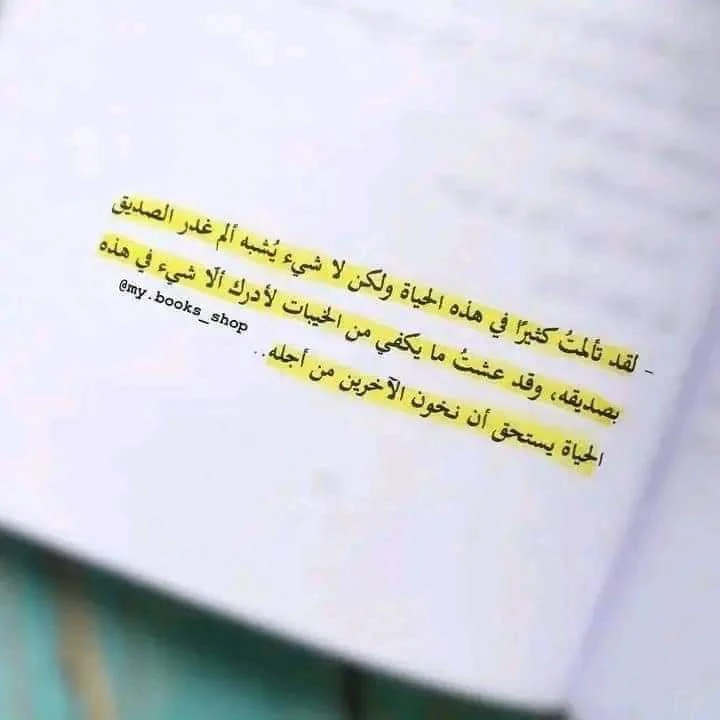 - لقد تألمتُ كثيرًا في هذه الحياة ولكن لا شيء يُشبه ألم غدر الصديق
بصديقه، وقد عشتُ ما يكفي من الخيبات لأدرك ألّا شيء في هذه
الحياة يستحق أن نخون الآخرين من أجله..
@my.books_shop